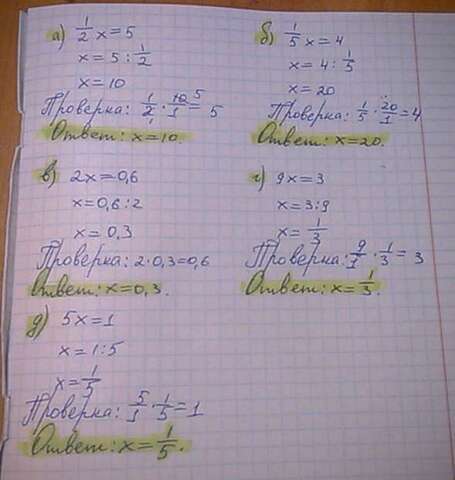 а) 1/2 x = 5
x = 5 : 1/2
x = 10
Проверка: 1/2 · 10/1 = 5
Ответ: x = 10.
б) 1/5 x = 4
x = 4 : 1/5
x = 20
Проверка: 1/5 · 20/1 = 4
Ответ: x = 20.
в) 2x = 0,6
x = 0,6 : 2
x = 0,3
Проверка: 2 · 0,3 = 0,6
Ответ: x = 0,3.
г) 9x = 3
x = 3 : 9
x = 1/3
Проверка: 9/1 · 1/3 = 3
Ответ: x = 1/3.
д) 5x = 1
x = 1 : 5
x = 1/5
Проверка: 5/1 · 1/5 = 1
Ответ: x = 1/5.